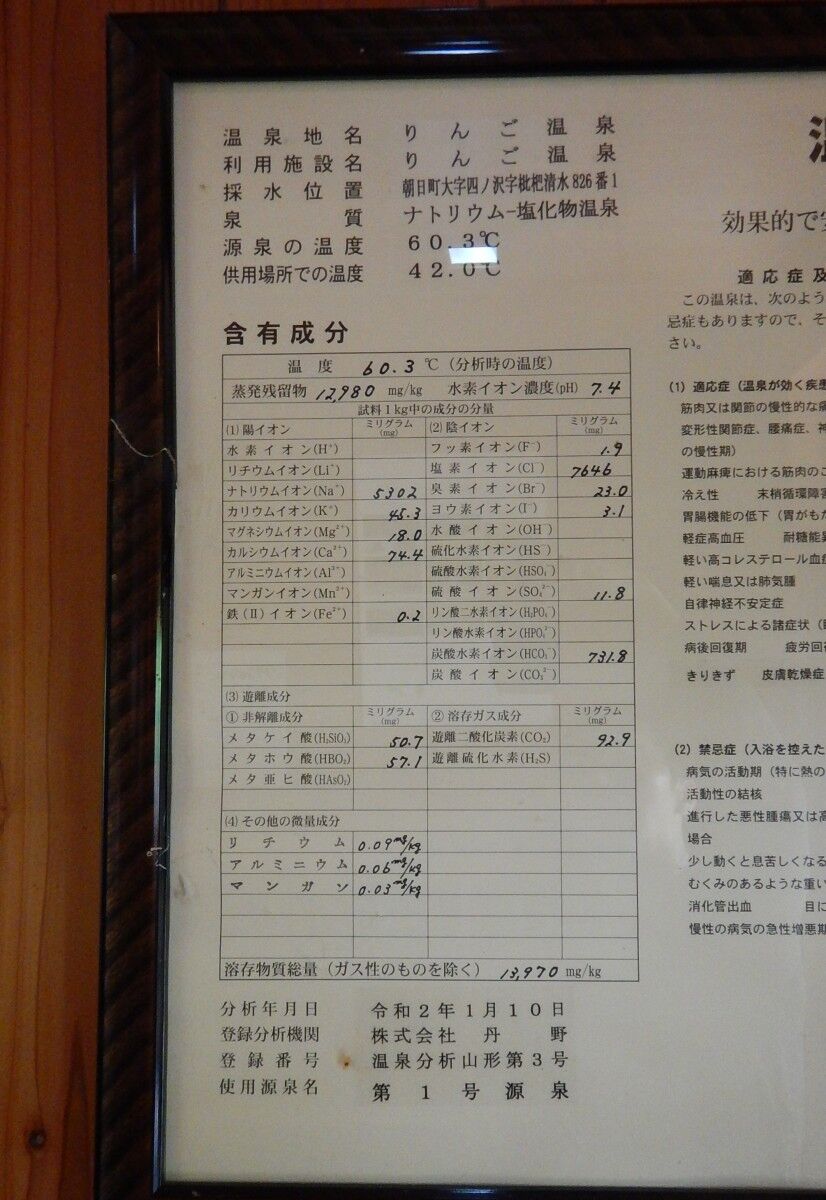 温泉地名 りんご温泉
利用施設名 りんご温泉
採水位置 朝日町大字四ノ沢字枇杷清水826番1
泉質 ナトリウム-塩化物温泉
源泉の温度 60.3℃
供用場所での温度 42.0℃
含有成分
温度 60.3 ℃ (分析時の温度)
蒸発残留物 12,980 mg/kg 水素イオン濃度(pH) 7.4
試料1kg中の成分の分量
(1) 陽イオン ミリグラム(mg) (2) 陰イオン ミリグラム(mg)
水素イオン(H⁺) フッ素イオン(F⁻) 1.9
リチウムイオン(Li⁺) 塩素イオン(Cl⁻) 7646
ナトリウムイオン(Na⁺) 5302 臭素イオン(Br⁻) 23.0
カリウムイオン(K⁺) 45.3 ヨウ素イオン(I⁻) 3.1
マグネシウムイオン(Mg²⁺) 18.0 水酸イオン(OH⁻)
カルシウムイオン(Ca²⁺) 74.4 硫化水素イオン(HS⁻)
アルミニウムイオン(Al³⁺) 硫酸水素イオン(HSO₄⁻)
マンガンイオン(Mn²⁺) 硫酸イオン(SO₄²⁻) 11.8
鉄(II)イオン(Fe²⁺) 0.2 リン酸二水素イオン(H₂PO₄⁻)
リン酸水素イオン(HPO₄²⁻)
炭酸水素イオン(HCO₃⁻) 731.8
炭酸イオン(CO₃²⁻)
(3) 遊離成分
① 非解離成分 ミリグラム(mg) ② 溶存ガス成分 ミリグラム(mg)
メタケイ酸(H₂SiO₃) 50.7 遊離二酸化炭素(CO₂) 92.9
メタホウ酸(HBO₂) 57.1 遊離硫化水素(H₂S)
メタ亜ヒ酸(HAsO₂)
(4) その他の微量成分
リチウム 0.09mg/kg
アルミニウム 0.06mg/kg
マンガン 0.03mg/kg
溶存物質総量(ガス性のものを除く) 13,970 mg/kg
分析年月日 令和2年1月10日
登録分析機関 株式会社 丹野
登録番号 温泉分析山形第3号
使用源泉名 第1号源泉
効果的で
適応症及
この温泉は、次のよう
忌症もありますので、そ
さい。
(1) 適応症(温泉が効く疾患
筋肉又は関節の慢性的な
変形性関節症、腰痛症、神
の慢性期)
運動麻痺における筋肉のこ
冷え性 末梢循環障害
胃腸機能の低下(胃がもた
軽症高血圧 耐糖能異
軽い高コレステロール血症
軽い喘息又は肺気腫
自律神経不安定症
ストレスによる諸症状(
病後回復期 疲労回
きりきず 皮膚乾燥症
(2) 禁忌症(入浴を控えた
病気の活動期(特に熱の
活動性の結核
進行した悪性腫瘍又は高
場合
少し動くと息苦しくなる
むくみのあるような重い
消化管出血 目に
慢性の病気の急性増悪期